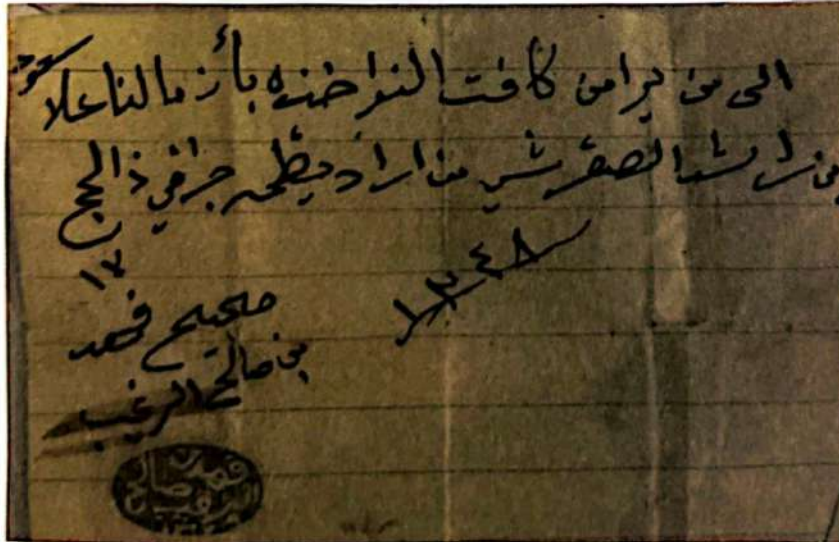 الى من يرا من كافت النواخذه بأن ما لنا علا سعود
بن راشد الصقر شي من اراد يظهر جرا في ذالحج
١٧
١٣٤٨
صحيح فهد
بن صالح الزغيب